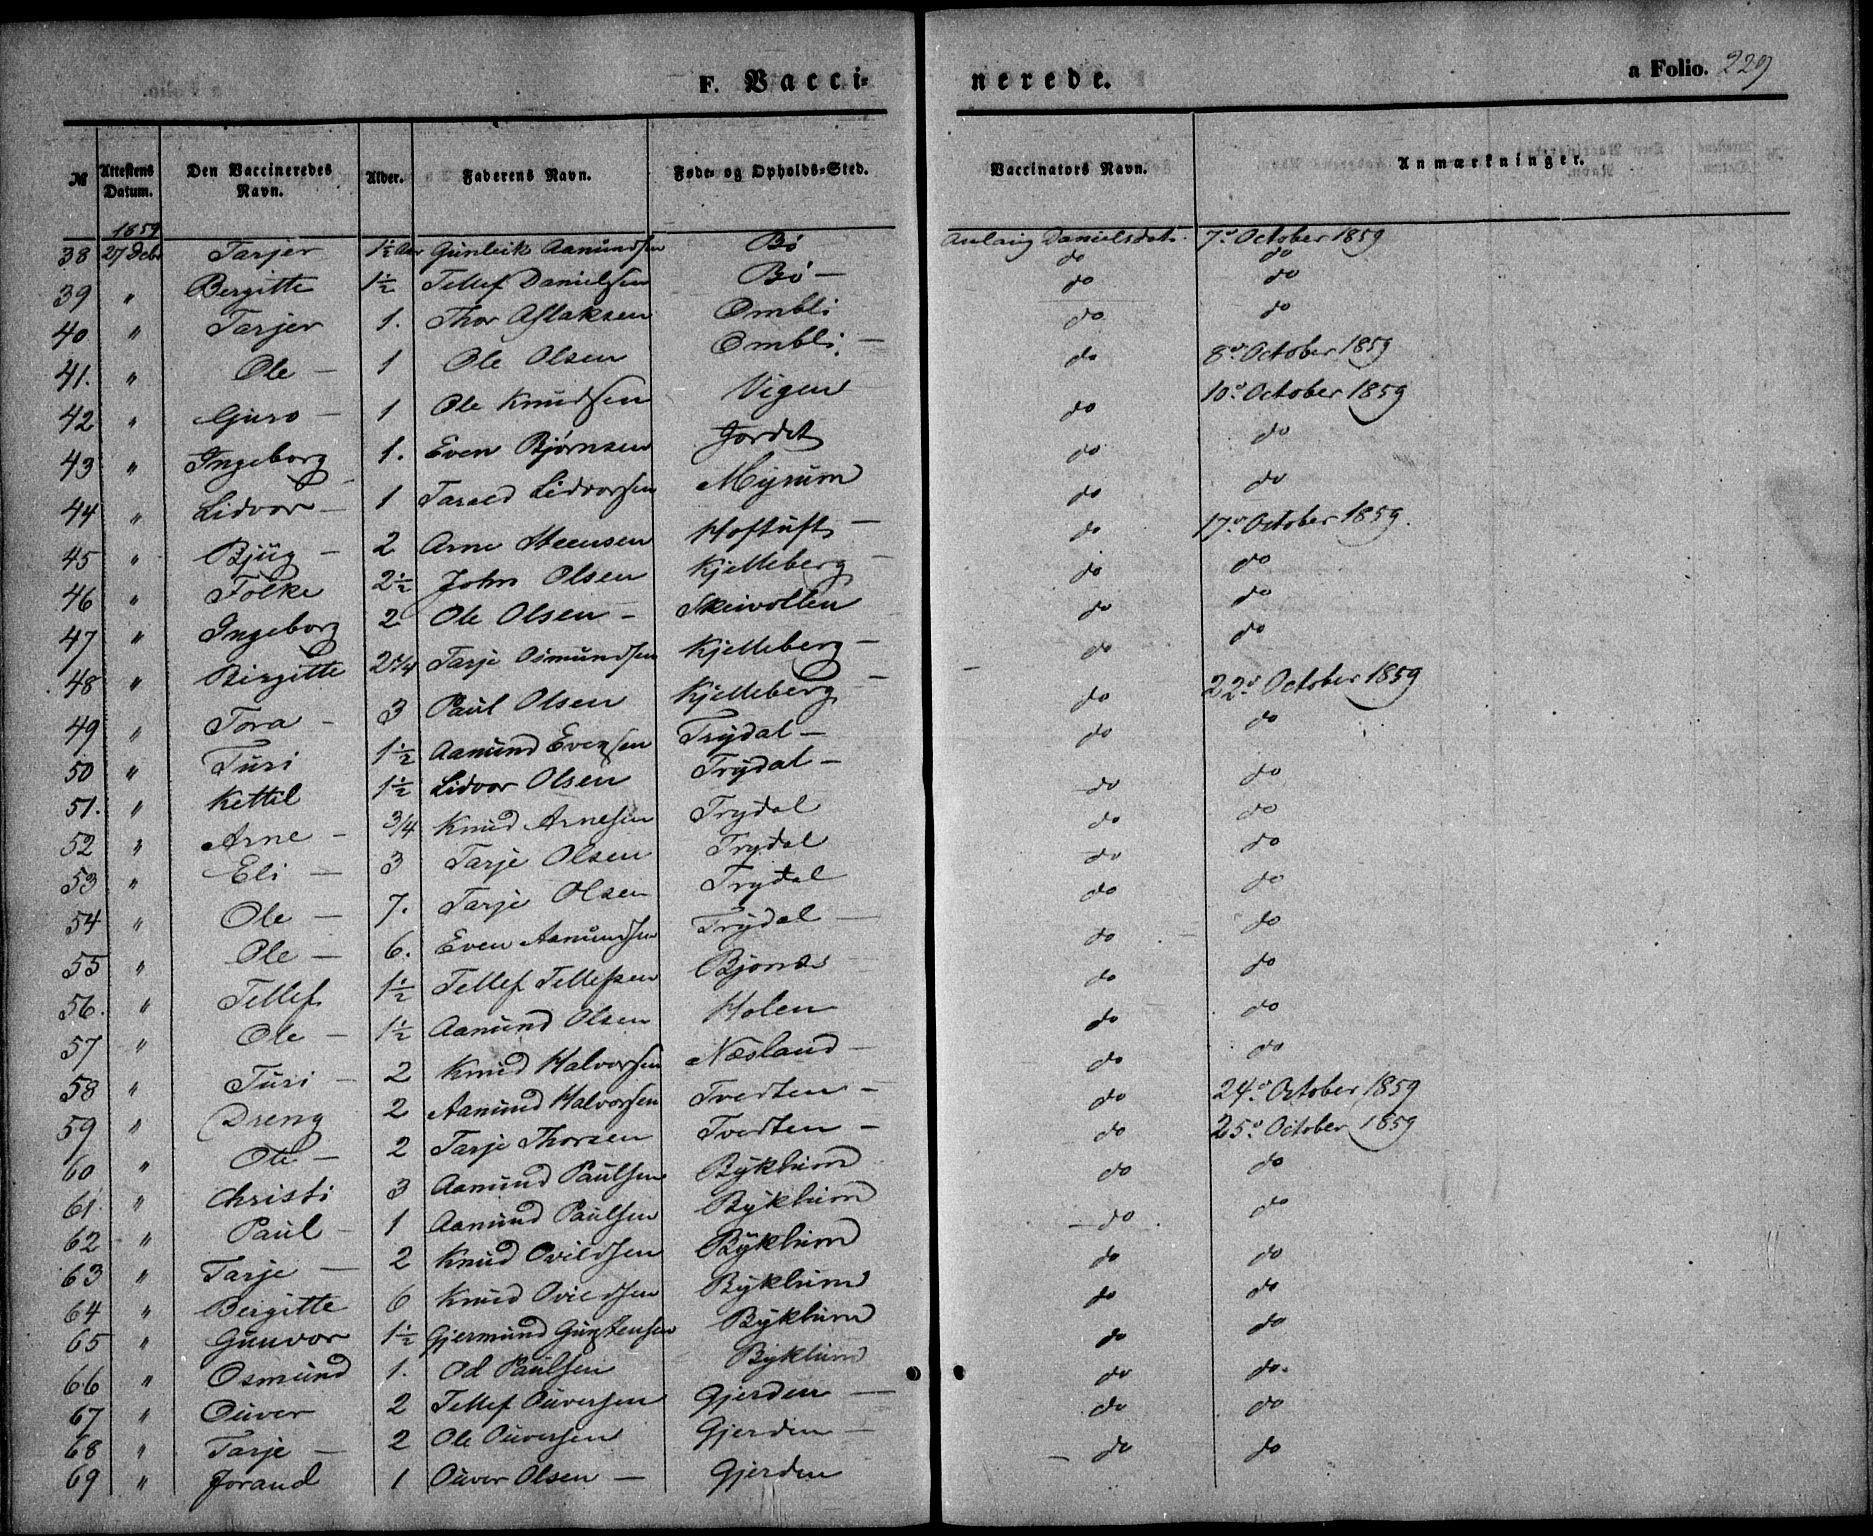 F. Vacci- nerede. a Folio. 229
№ Attestens Datum. Den Vaccineredes Navn. Alder. Faderens Navn. Føde- og Opholds-Sted. Vaccinators Navn. Anmærkninger.
1859
38 27 Decbr Tarjer 1½ Aar Gunleik Aamundsen Bø Danielsdat. 7de October 1859
do do
39 " Bergitte 1½ Tellef Danielsen Bø — do do
40 " Tarjer 1. Thor Aslaksen Ombli do do
41. " Ole — 1 Ole Olsen Ombli. — do 8de October 1859
42 " Guro — 1 Ole Knudsen Vigen do 10de October 1859
43 " Ingeborg 1. Even Bjørnsen Jordet do do
44 " Lidvor — 1 Tarald Lidvorsen Myrum do do
45 " Bjug — 2 Arne Steensen Hoftuft — do 17de October 1859.
46 " Folke 2½ John Olsen Kjelleberg — do do
47 " Ingeborg 2 Ole Olsen — Skeivollen do do
48 " Birgitte 2¼ Tarje Osmundsen Kjelleberg — do do
49 " Tora — 3 Paul Olsen Kjelleberg — do 22de October 1859
50 " Turi 1½ Aamund Evensen Trydal — do do
51. " Kettil 1½ Lidvor Olsen Trydal — do do
52 " Arne — 3/4 Knud Arnesen Trydal do do
53 " Eli — 3 Tarje Olsen Trydal do do
54 " Ole — 7. Tarje Olsen Trydal do do
55 " Ole — 6. Even Aamundsen Trydal — do do
56. " Tellef 1½ Tellef Tellefsen Bjonæs do do
57 " Ole — 1½ Aamund Olsen Holen do do
58 " Turi — 2 Knud Halvorsen Næsland — do do
59 " Dreng 2 Aamund Halvorsen Tvedten — do 24de October 1859
60 " Ole — 2 Tarje Thorsen Tvedten — do 25de October 1859
61. " Christi 3 Aamund Paulsen Byklum do do
62 " Paul — 1 Aamund Paulsen Byklum do do
63 " Tarje — 2 Knud Ovildsen Byklum do do
64 " Bergitte 6 Knud Ovildsen Byklum do do
65 " Gunvor 1½ Gjermund Gunstensen Byklum do do
66 " Osmund 1. Od Paulsen Byklum do do.
67 " Ouver 2 Tellef Ouversen Gjerden — do do
68 " Tarje — 2 Ole Ouversen Gjerden — do do
69 " Jorand 1 Ouver Olsen — Gjerden